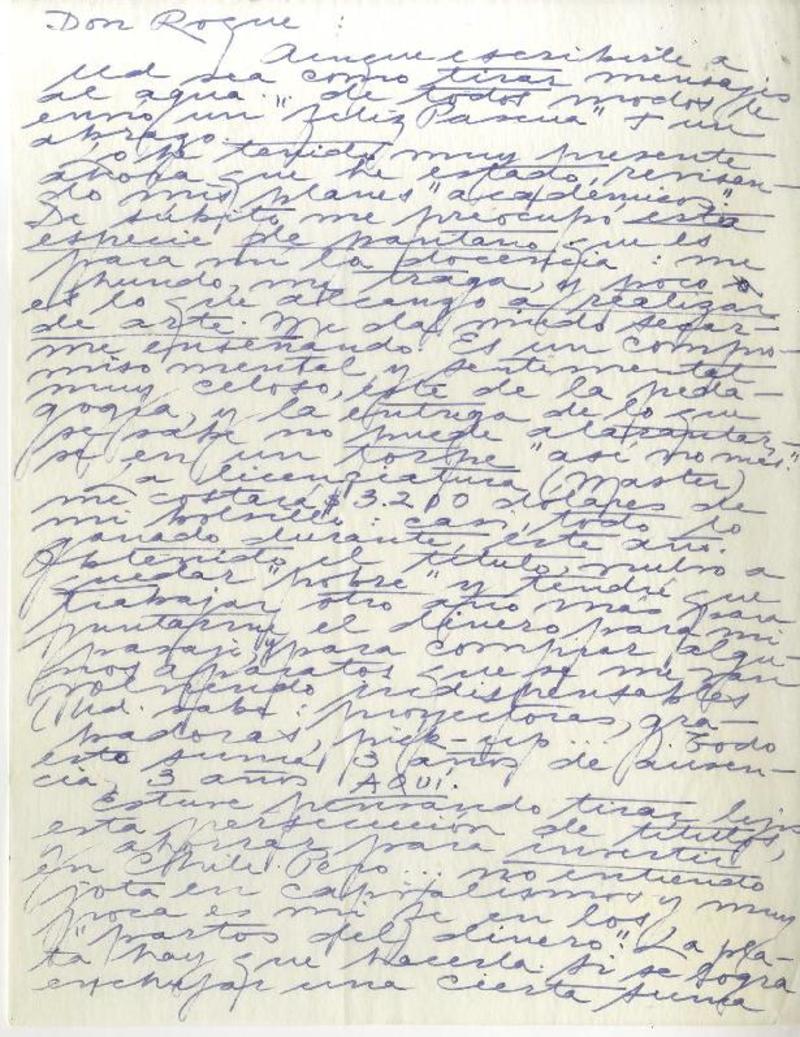 Don Roque :
Aunque escribirle a
Ud sea como tirar mensajes
al agua... de todos modos le
envío un "Feliz Pascua" + un
abrazo.
Lo he tenido muy presente
ahora que he estado revisan-
do mis planes "académicos".
De súbito me preocupó esta
especie de pantano que es
para mí la docencia : me
hundo, me traga, y poco
es lo que alcanzo a realizar
de arte. Me da miedo secar-
me enseñando. Es un compro-
miso mental y sentimental
muy celoso, este de la peda-
gogía, y la entrega de lo que
se sabe no puede
en un torpe "así no más".
La licenciatura (Master)
me costará $3.200 dólares de
mi bolsillo : casi todo lo
ganado durante este año.
Obtenido el título, vuelvo a
quedar "pobre" y tendré que
trabajar otro año más para
juntarme el dinero para mi
pasaje y para comprar algu-
nos aparatos que se me van
volviendo indispensables
(Ud. sabe : proyectoras, gra-
badoras, pick-up... Todo
esto suma 3 años de ausen-
cia, 3 años AQUÍ.
Estuve pensando tirar lejos
esta persecución de títulos,
y ahorrar para invertir
en Chile. Pero... no entiendo
jota en capitalismos y muy
poca es mi fe en los
"partos del dinero". La pla-
ta hay que hacerla. Si se logra
enchufar una cierta suma